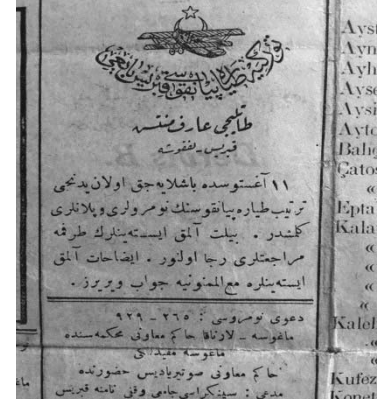 توركيه طياره پيانقوسى قبريس بايعى
طاتليجى عارف منتش
قبريس - لفقوشه
١١ آغستوسده باشلايه جق اولان يدنجى
ترتيب طياره پيانقوسنك نومرولرى و پلانلرى
كلمشدر . بيلت آلمق ايسته ينلرك طرفمه
مراجعتلرى رجا اولنور . ايضاحات آلمق
ايسته ينلره مع الممنونيه جواب ويريرز .
دعوى نومروسى : ٢٦٥ - ٩٢٩
ماغوسه - لارناقا حاكم معاونى محكمه سنده
ماغوسه مقيداكى
حاكم معاونى صوتيرياديس حضورنده
مدعى : سينكراسى جامعى وقفى نامنه قبريس
Ayst
Ayn
Ayh
Ayse
Aysi
Ayto
Balıq
Çatos
«
Epta
Kala
«
«
«
«
Kaleb
«
«
Kufez
Konet